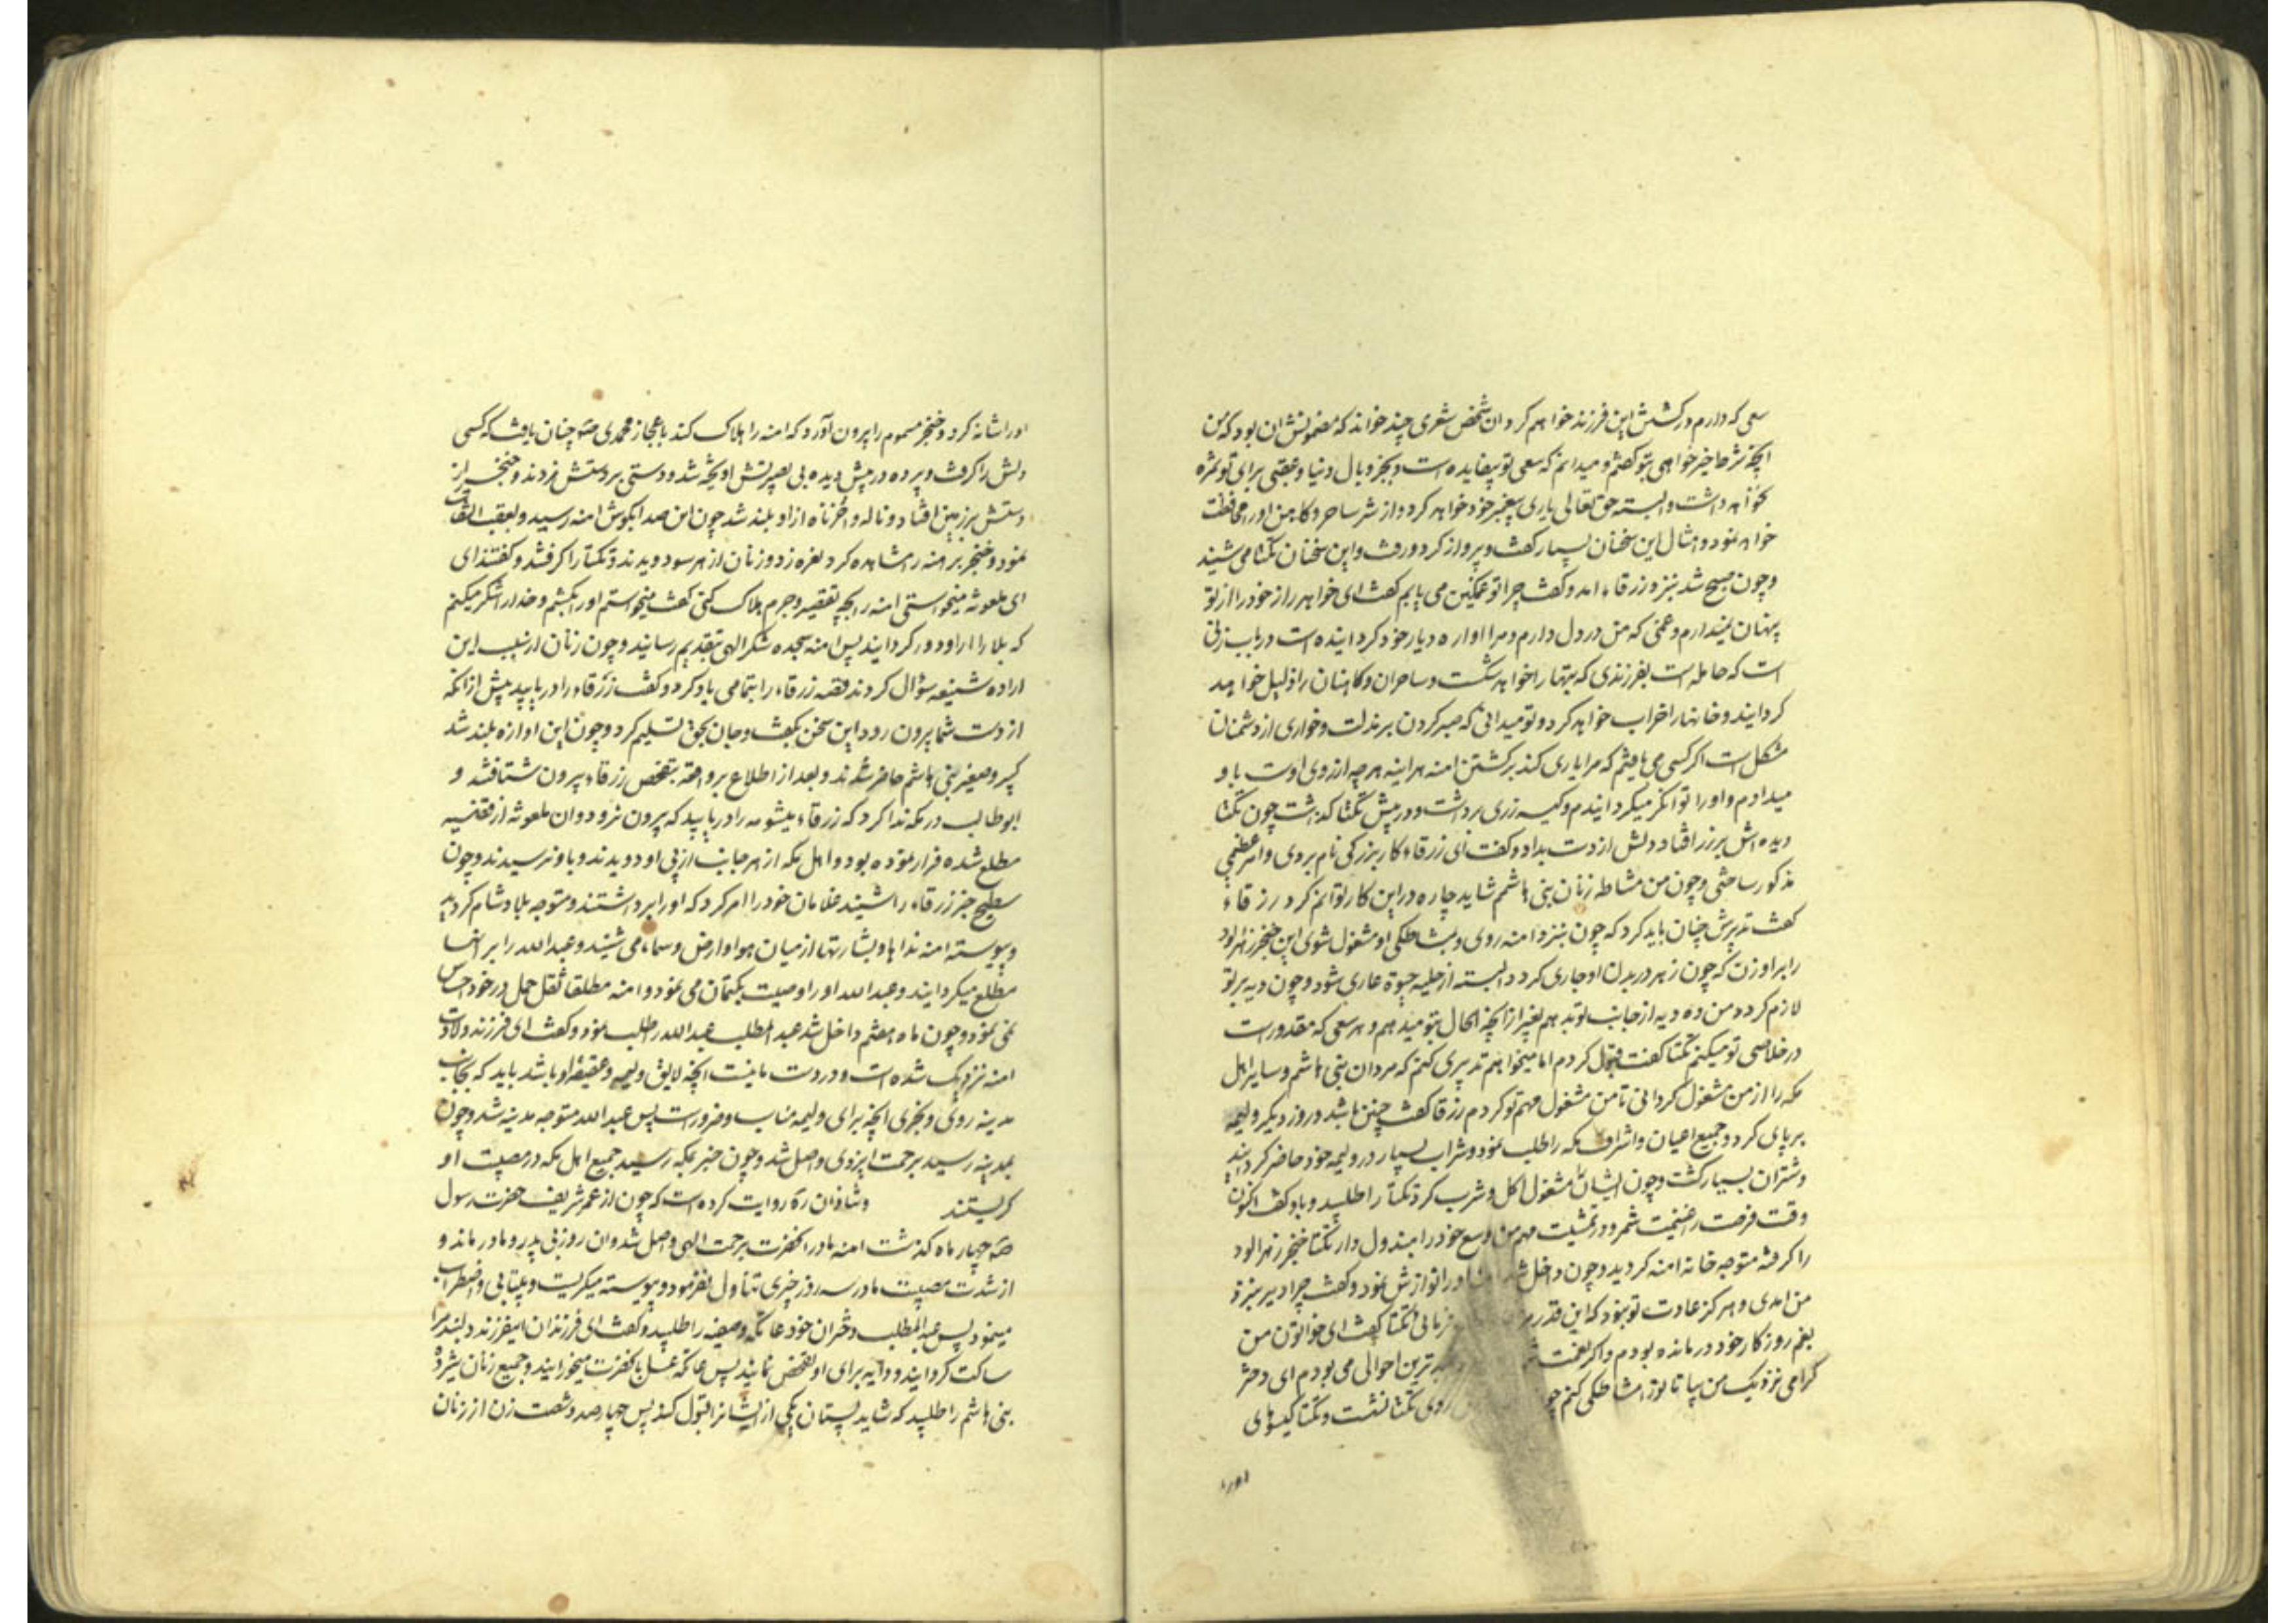 سعی که دارم در کشتن این فرزند خواهم کرد و ان شخص شعری چند خواند که مضمونش ان بود که من
انچه شرط خیرخواهی بتو گفتم و میدانم که سعی تو بیفایده است و بجز وبال دنیا و عقبی برای تو ثمره
نخواهد داشت و البته حق تعالی یاری پیغمبر خود خواهد کرد و از شر ساحر و کاهن او را محافظت
خواهد نمود و امثال این سخنان بسیار گفت و پرواز کرد و رفت و این سخنان تکتا می شنید
و چون صبح شد بنزد زرقاء امد و گفت چرا تو غمگین می یابم گفت ای خواهر راز خود را از تو
پنهان نمیدارم و غمی که من در دل دارم و مرا اواره دیار خود کردانیده است در باب زنی
است که حامله است بفرزندی که بتها را خواهد شکست و ساحران و کاهنان را ذلیل خواهد
کردانید و خانها را خراب خواهد کرد و تو میدانی که صبر کردن بر مذلت و خواری از دشمنان
مشکل است اکر کسی می یافتم که مرا یاری کند بر کشتن امنه هراینه هرچه ارزوی اوست باو
میدادم و او را توانکر میکردانیدم و کیسه زری برداشت و در پیش تکتا کذاشت چون تکتا
دیده اش بر زر افتاد دلش از دست بداد و گفت ای زرقاء کار بزرکی نام بردی و امر عظیمی
مذکور ساختی و چون من مشاطه زنان بنی هاشم شاید چاره در این کار توانم کرد زرقاء
گفت تدبیرش چنان باید کرد که چون بنزد امنه روی و بمشاطکی او مشغول شوی این خنجر زهرالود
را بر او زن که چون زهر در بدن او جاری کردد البته از حلیه حیوة عاری شود و چون دیه بر تو
لازم کردد من ده دیه از جانب تو بدهم بغیر از انچه الحال بتو میدهم و هر سعی که مقدور است
در خلاصی تو میکنم تکتا گفت قبول کردم اما میخواهم تدبیری کنم که مردان بنی هاشم و سایر اهل
مکه را از من مشغول کردانی تا من مشغول مهم تو کردم زرقا گفت چنین باشد و روز دیکر ولیمه
برپای کرد و جمیع اعیان و اشراف مکه را طلب نمود و شراب بسیار در ولیمه خود حاضر کردانید
و شتران بسیار کشت و چون ایشان مشغول اکل و شرب کردند تکتا را طلبید و باو گفت اکنون
وقت فرصت را غنیمت شمر و در تمشیت مهم من وسع خود را مبذول دار تکتا خنجر زهرالود
را کرفته متوجه خانه امنه کردید و چون داخل شد او را نوازش نمود و گفت چرا دیر بنزد
من امدی و هرکز عادت تو نبود که این قدر تکتا گفت ای خواتون من
بغم روزکار خود درمانده بودم و اکر نعمت ترین احوالی می بودم ای دختر
کرامی نزدیک من بیا تا تو را مشاطکی کنم چو روی تکتا نشست و تکتا کیسوهای
اورا
اورا شانه کرد و خنجر مسموم را بیرون آورد که امنه را هلاک کند باعجاز محمدی صه چنان یافت که کسی
دلش را کرفت و پرده در پیش دیده بی بصیرتش اویخته شد و دستی بر دستش زدند و خنجر از
دستش بر زمین افتاد و ناله و احزناه از او بلند شد چون این صدا بکوش امنه رسید و بعقب التفات
نمود و خنجر برهنه را مشاهده کرد نعره زد و زنان از هر سو دویدند و تکتا را کرفتند و کفتند ای
ای ملعونه میخواستی امنه را بچه تقصیر و جرم هلاک کنی گفت میخواستم او را بکشم و خدا را شکر میکنم
که بلا را از او دور کردانید پس امنه سجده شکر الهی بتقدیم رسانید و چون زنان از سبب این
اراده شنیعه سؤال کردند قصه زرقاء را بتمامی یاد کرد و گفت زرقاء را دریابید پیش از انکه
از دست شما بیرون رود این سخن بگفت و جان بحق تسلیم کرد و چون این اوازه بلند شد
کبیر و صغیر بنی هاشم حاضر شدند و بعد از اطلاع بر واقعه بتفحص زرقاء بیرون شتافتند و
ابوطالب در مکه ندا کرد که زرقاء میشومه را دریابید که بیرون نرود و ان ملعونه از قضیه
مطلع شده فرار نموده بود و اهل مکه از هر جانب از پی او دویدند و باو نرسیدند و چون
سطیح خبر زرقاء را شنید غلامان خود را امر کرد که او را برداشتند و متوجه بلاد شام کردید
و پیوسته امنه نداها و بشارتها از میان هوا و ارض و سماء می شنید و عبدالله را بر انها
مطلع میکردانید و عبدالله او را وصیت بکتمان می نمود و امنه مطلقا ثقل حمل در خود احساس
نمی نمود و چون ماه هفتم داخل شد عبدالمطلب عبدالله را طلب نمود و گفت ای فرزند ولادت
امنه نزدیک شده است و در دست ما نیست انچه لایق ولیمه و عقیقه او باشد باید که بجانب
مدینه روی و بخری انچه برای ولیمه مناسب و ضرور است پس عبدالله متوجه مدینه شد و چون
بمدینه رسید برحمت ایزدی واصل شد و چون خبر بمکه رسید جمیع اهل مکه در مصیبت او
کریستند و شاذان ره روایت کرده است که چون از عمر شریف حضرت رسول
صه چهار ماه کذشت امنه مادر انحضرت برحمت الهی واصل شد و ان روز بی پدر و مادر ماند و
از شدت مصیبت مادر سه روز چیزی تناول نفرمود و پیوسته میکریست و بیتابی و اضطراب
مینمود پس عبدالمطلب دختران خود عاتکه و صفیه را طلبید و گفت ای فرزندان این فرزند دلبند مرا
ساکت کردانید و دایه برای او تفحص نمایید پس عاتکه عسل بانحضرت میخورانید و جمیع زنان شیرده
بنی هاشم را طلبید که شاید پستان یکی از ایشانرا قبول کند پس چهارصد و شصت زن از زنان